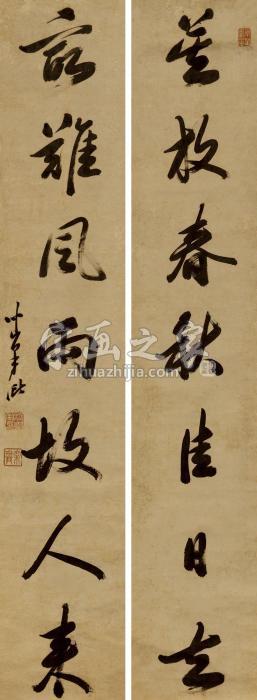 莫放春秋佳日去
最難風雨故人來
字画之家
zihuazhijia.com